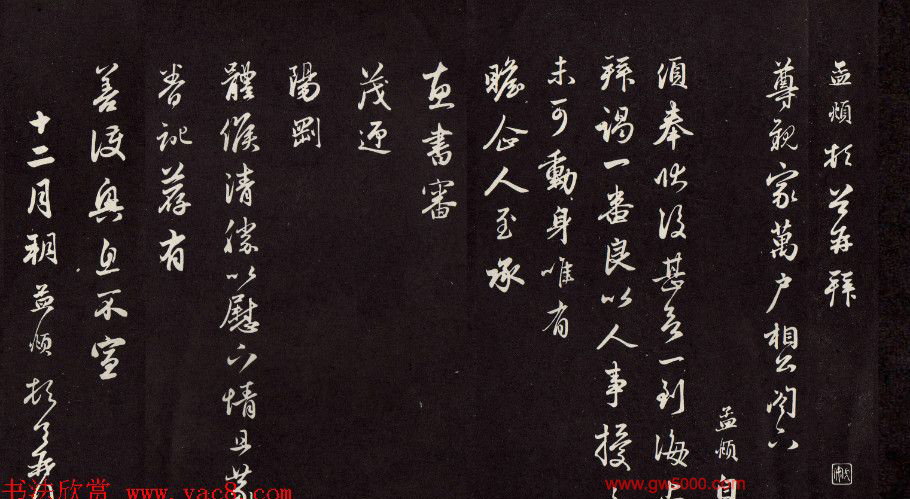 孟頫頓首再拜
尊親家萬戶相公閤下孟頫自
須奉狀後甚欲一到海上
拜謁一番良以人事擾
未可動身唯有
瞻企人至承
惠書審
茂迎
陽剛
體候清勝以慰下情且蒙
眷記荐有
善後與且不宣
十二月朔孟頫頓首再
书法欣赏 www.yac8.com
www.gw5000.com